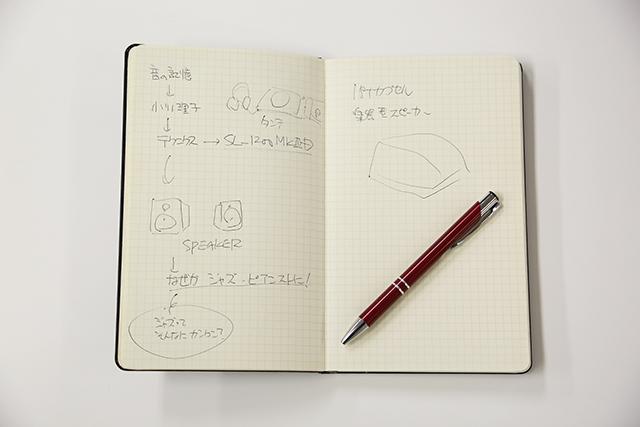 音の記憶
小川理子
タンテ
テクニクス → SL-1200MK
SPEAKER
なぜか ジャズ・ピアニストに!
ジャズって
そんなにカンタン?
スピーカー